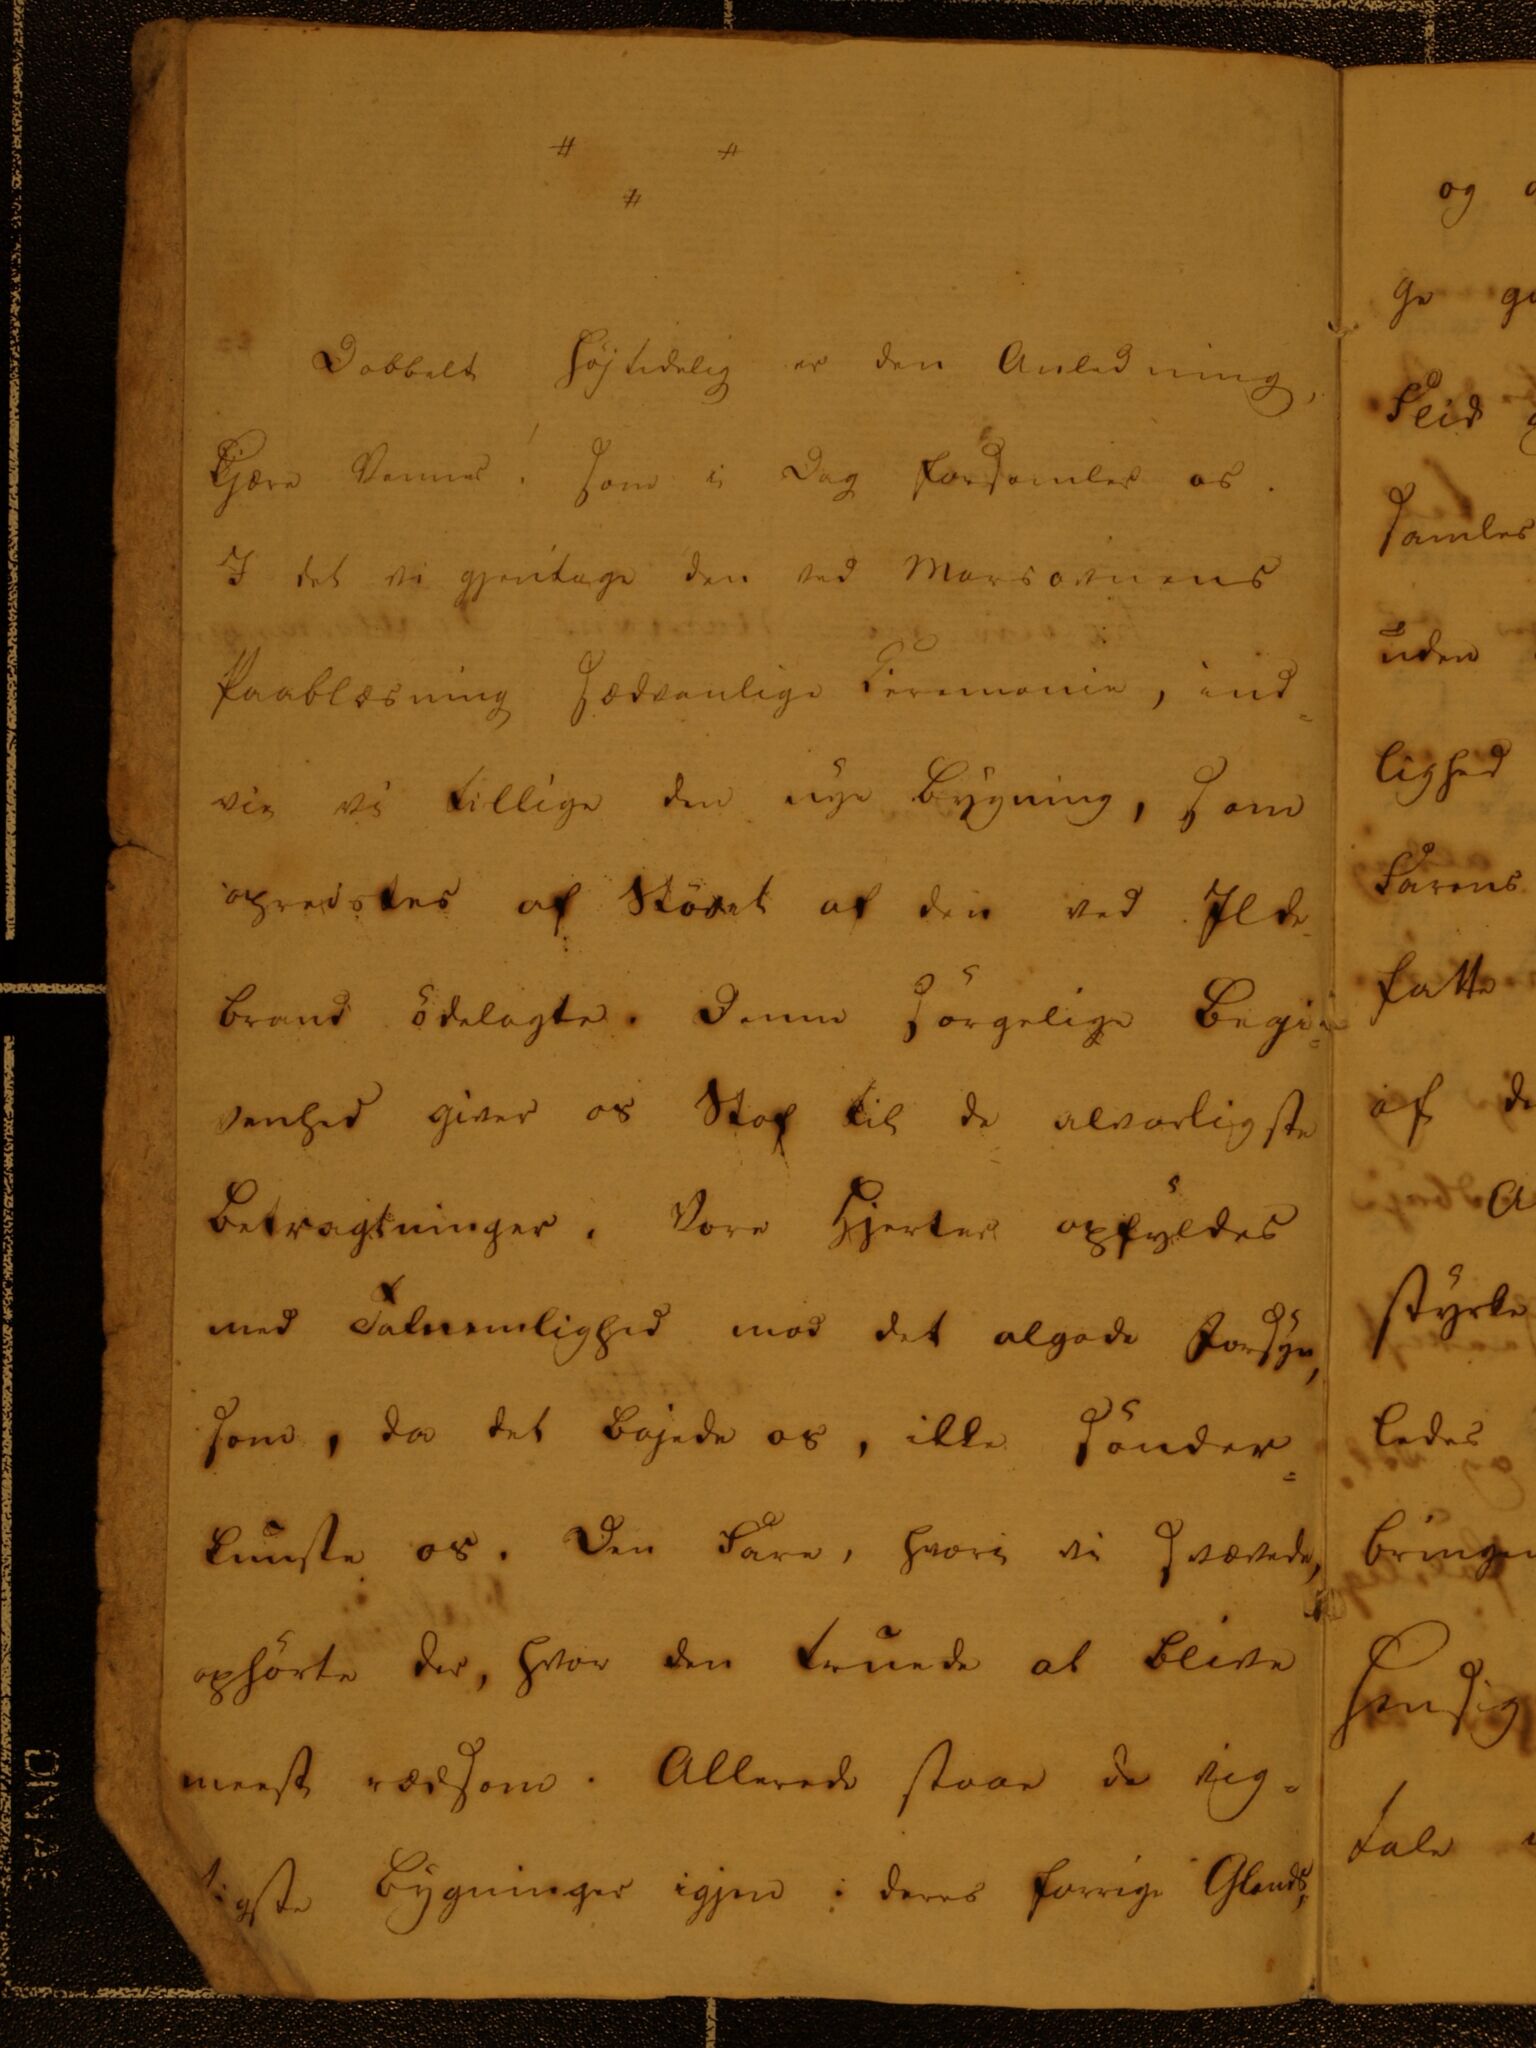 # #
#
Dobbelt höjtidelig er den Anledning,
kjære Venner! som i Dag forsamler os.
I det vi gjentage den ved Marsovnens
Paablæsning sædvanlige Ceremonie, ind=
vie vi tillige den nye Bygning, som
opreistes af Stövet af den ved Ilde-
brand ödelagte. Denne sörgelige Begi=
venhed giver os Stof til de alvorligste
Betragtninger. Vore Hjerter opfyldes
med Taknemlighed mod det algode Forsyn,
som, da det bøjede os, ikke sönder=
knuste os. Den Fare, hvori vi svævede,
ophörte der, hvor den truede at blive
meest rædsom. Allerede staae de vig=
tigste Bygninger igjen i deres forrige Glands,
og
ge
Flid
samles
uden
lighed
Farens
fatte
af de
styrke
ledes
bringe
hensig
tale